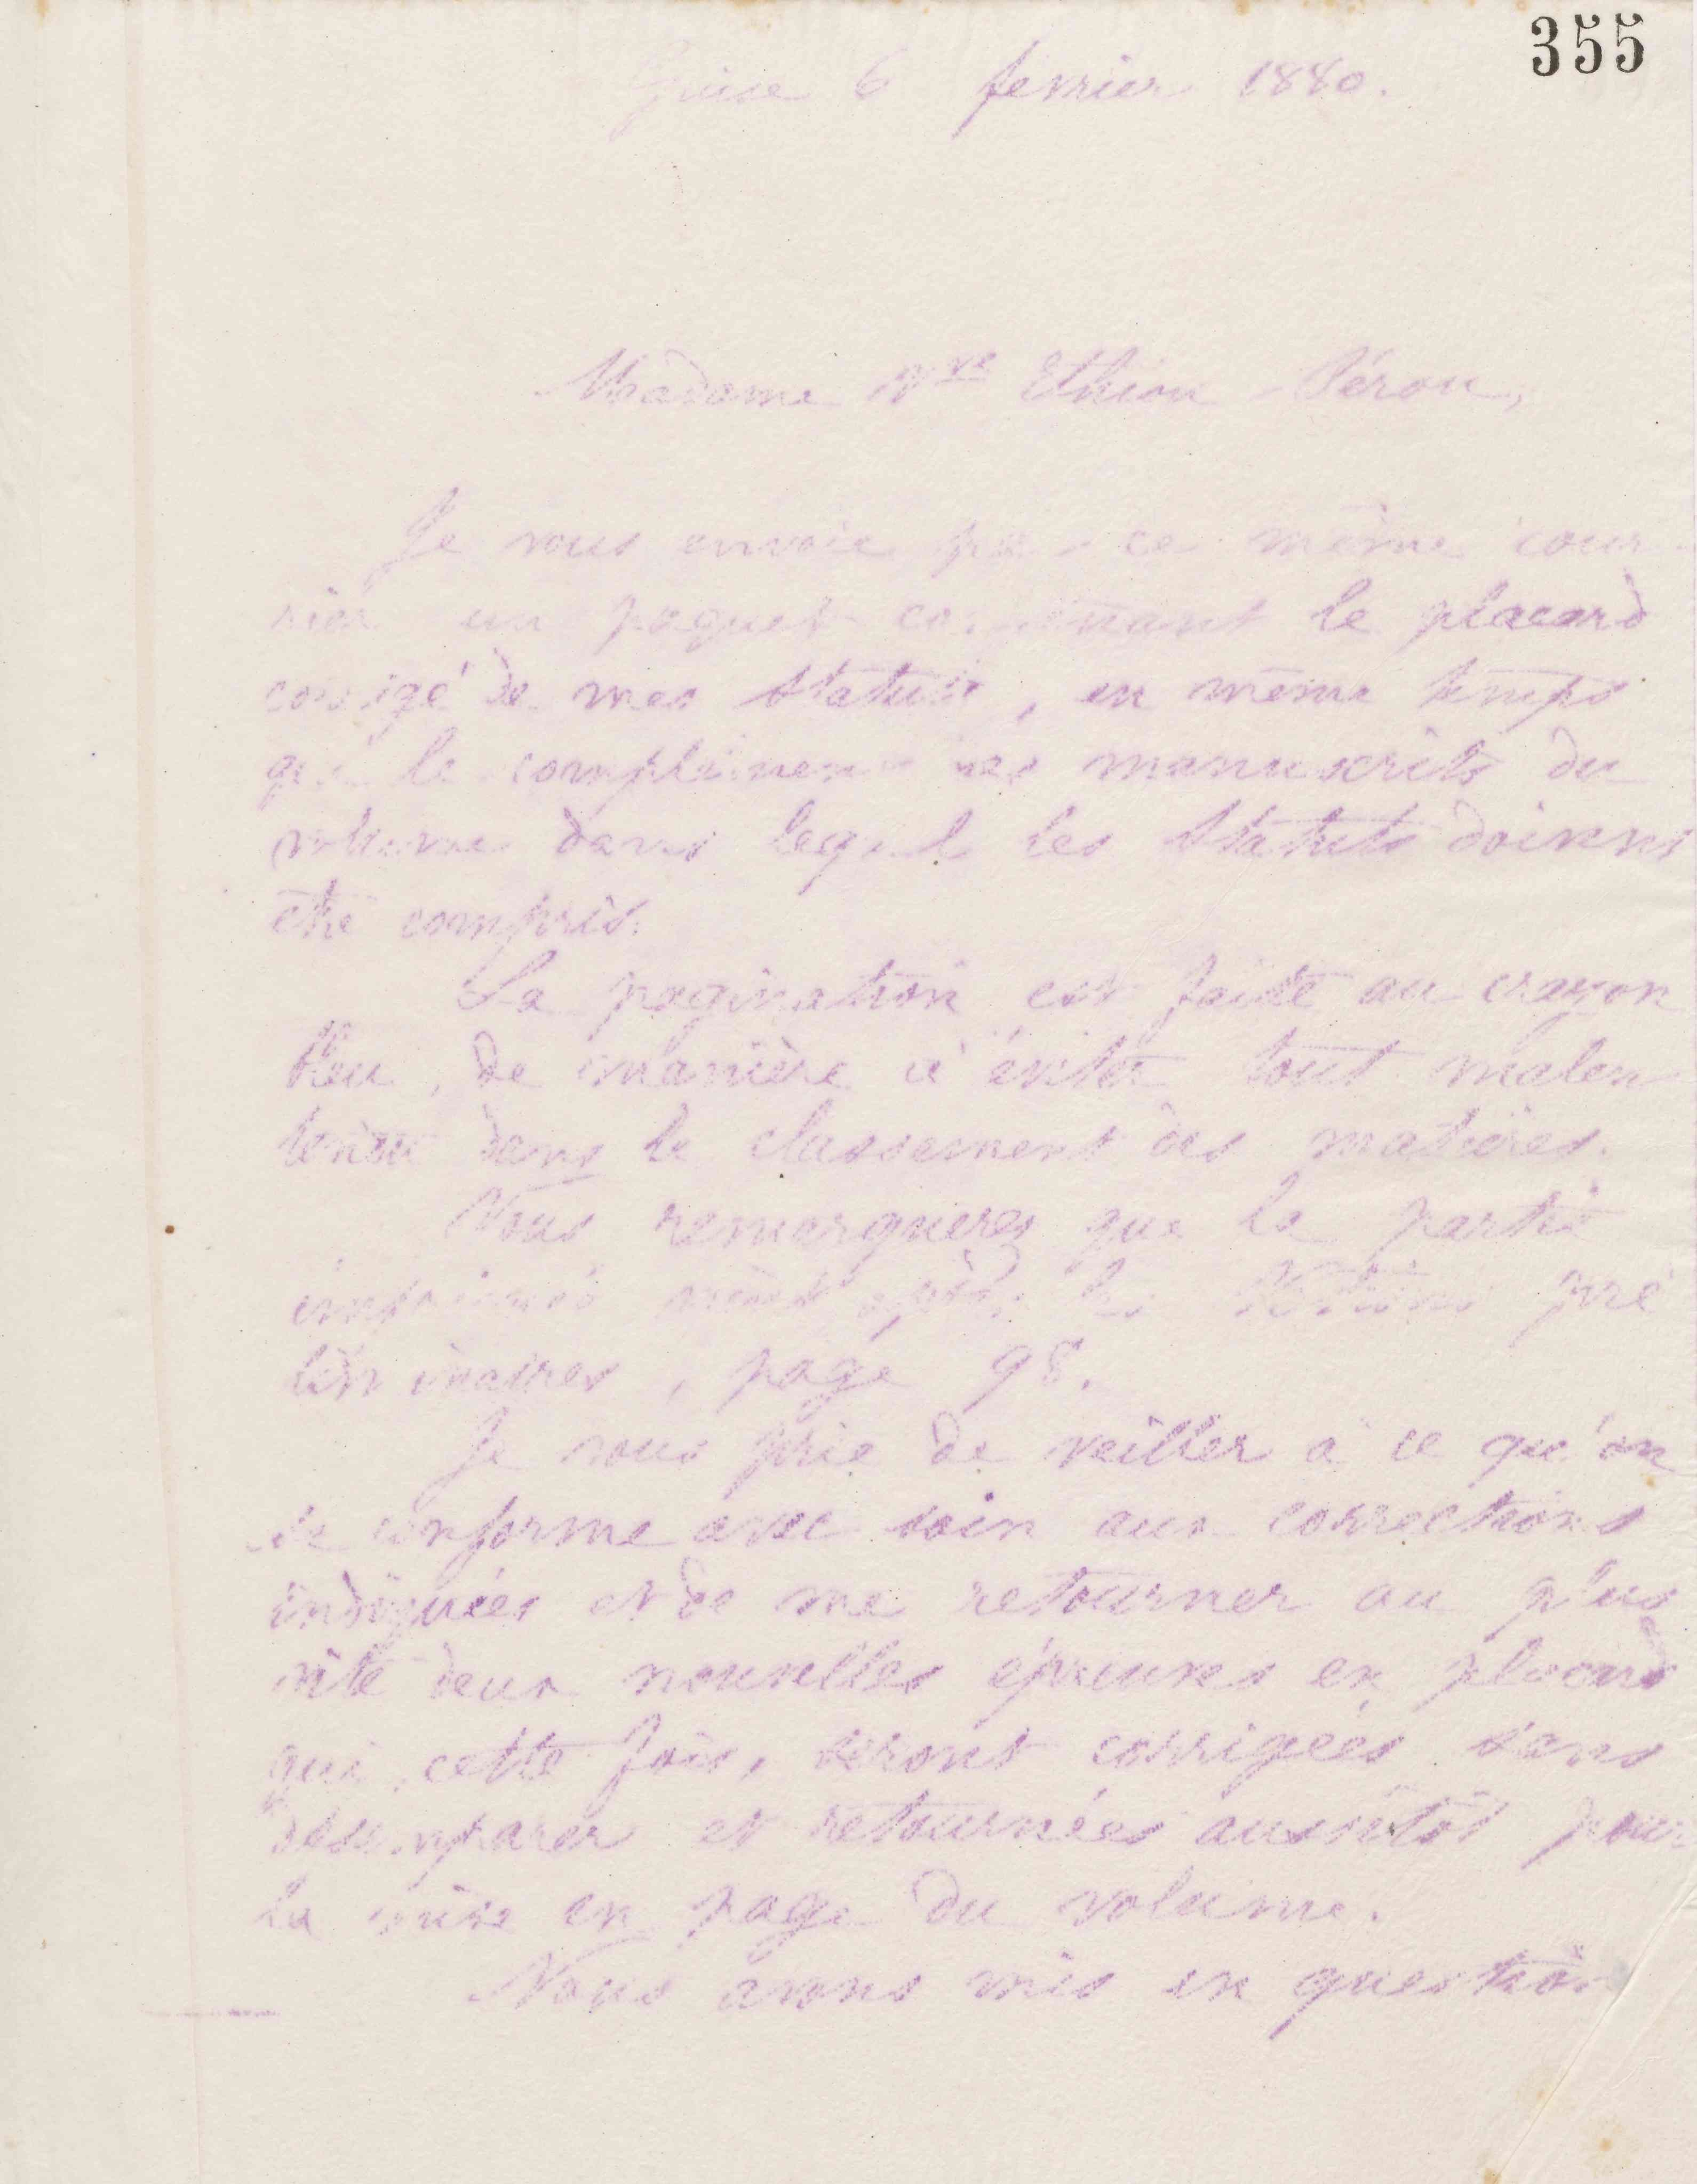 355
Guise 6 février 1880.
Madame Vve Ethiou-Pérou,
Je vous envoie par ce même cour-
rier un paquet contenant le placard
corrigé de mes statuts, en même temps
que le complément des manuscrits du
volume dans lequel les Statuts doivent
être compris.
La pagination est faite au crayon
bleu, de manière à éviter tout malen
tendu dans le classement des matières.
Vous remarquerez que la partie
imprimée vient après les Notions pré
liminaires, page 98.
Je vous prie de veiller à ce qu'on
se conforme avec soin aux corrections
indiquées et de me retourner au plus
vite deux nouvelles épreuves en placard
qui, cette fois, seront corrigées sans
désemparer et retournées aussitôt pour
la mise en page du volume.
Nous avons mis en question